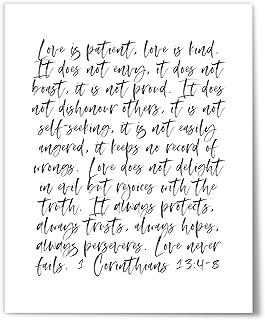 Love is patient, love is kind.
It does not envy, it does not
boast, it is not proud. It does
not dishonour others, it is not
self-seeking, it is not easily
angered, it keeps no record of
wrongs. Love does not delight
in evil but rejoices with the
truth. It always protects,
always trusts, always hopes,
always perseveres. Love never
fails. 1 Corinthians 13:4-8